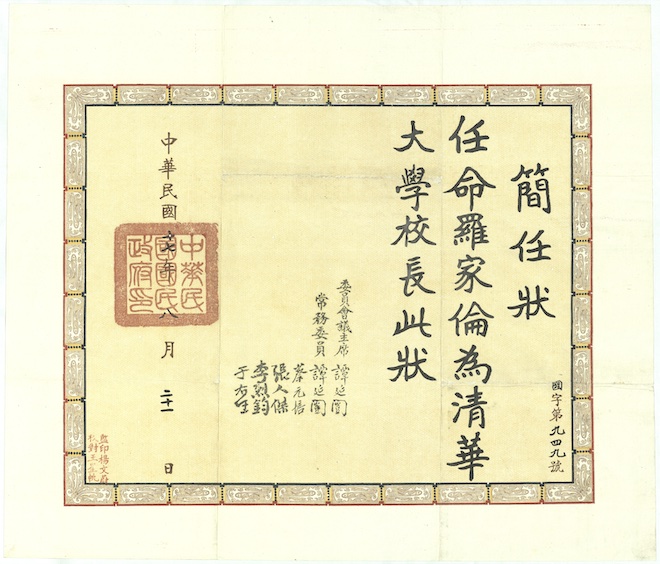 簡任狀
任命羅家倫為清華
大學校長此狀
國字第九四九號
委員會議主席 譚延闓
常務委員 譚延闓
蔡元培
張人傑
李烈鈞
于右任
中華民國十七年八月二十一日
中華民
國國民
政府印
監印楊文蔚
校對王